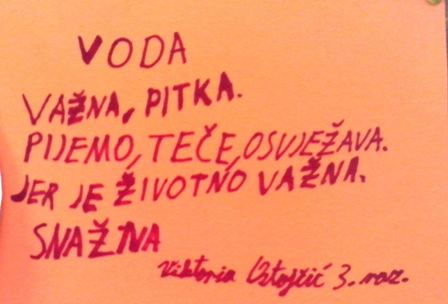 VODA
VAŽNA, PITKA.
PIJEMO, TEČE, OSVJEŽAVA.
JER JE ŽIVOTNO VAŽNA.
SNAŽNA
Viktoria 3. raz.